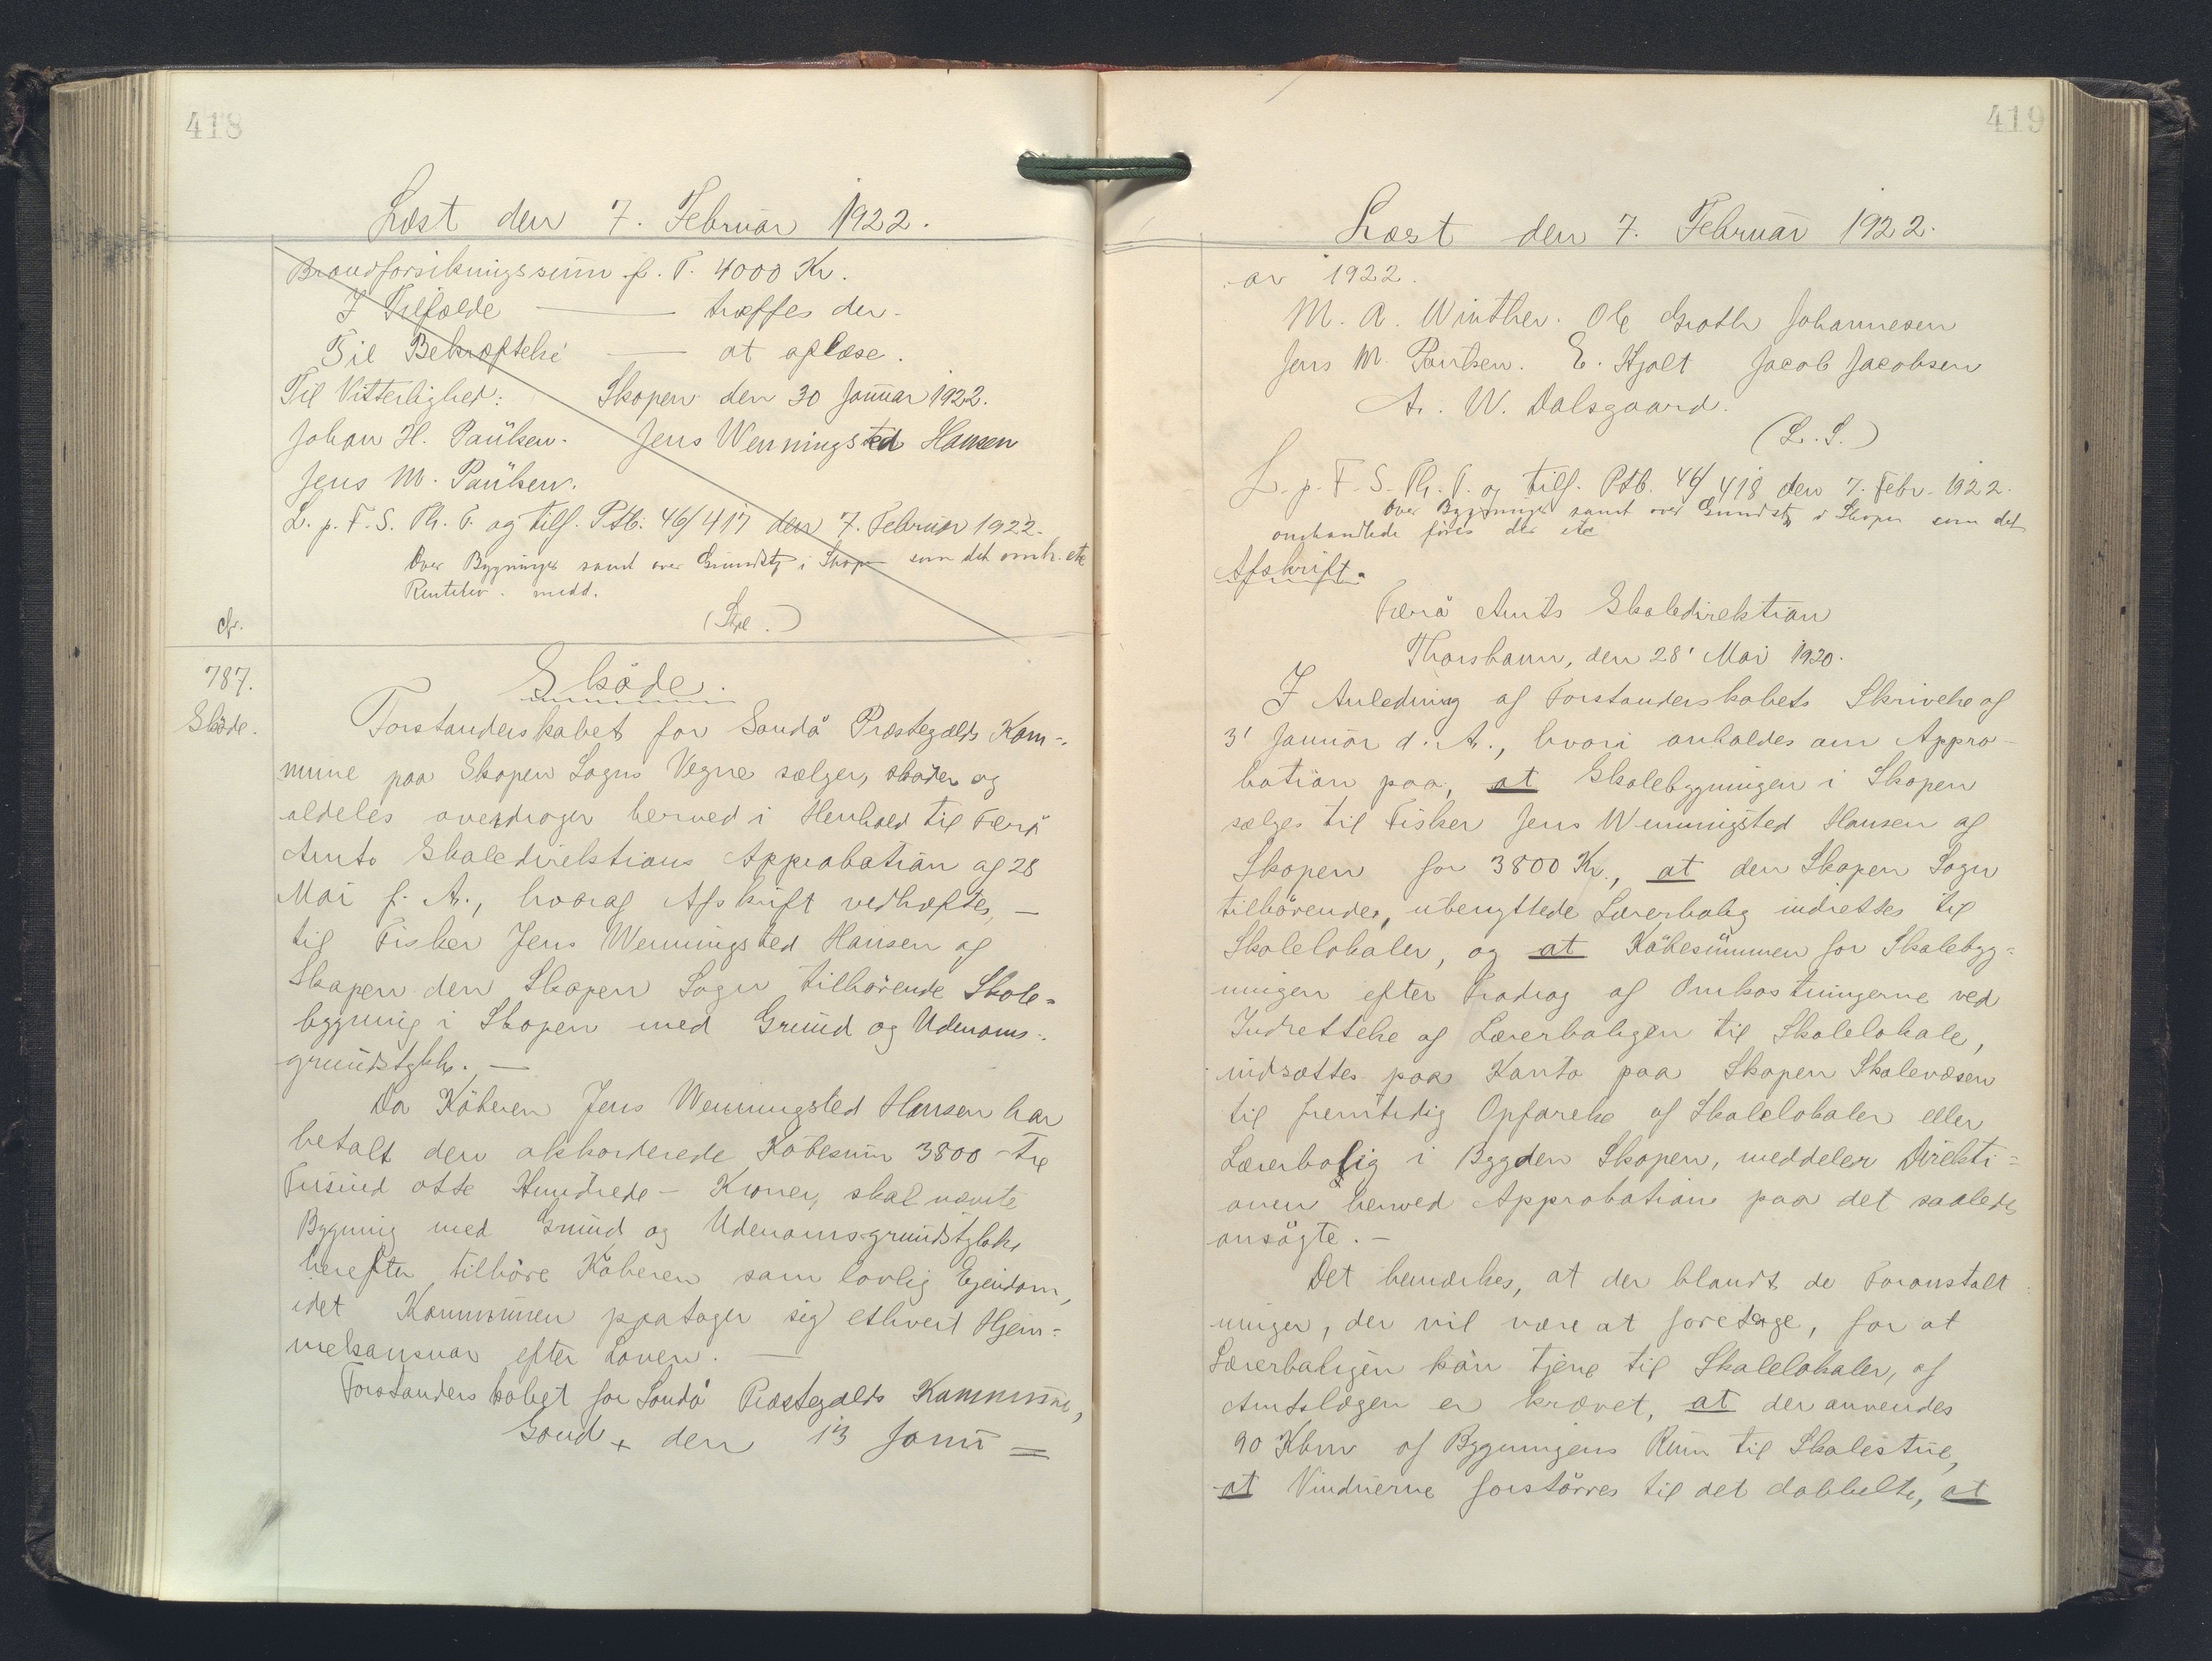 418
Læst den 7. Februar 1922.
Brandforsikringssum p. T. 4000 Kr.
I Tilfælde — træffes der.
Til Bekræftelse — at aflæse.
Til Vitterlighed: Skopen den 30 Januar 1922.
Johan H. Paulsen. Jens Wenningsted Hansen
Jens M. Paulsen.
L. p. F. S. Th. T. og tilf. Ptb: 46/417 den 7. Februar 1922.
Over Bygninger samt over Grundstk i Skopen som det omh. etc
medd.
cfr.
787.
Sköde.
Sköde.
Forstanderskabet for Sandö Præstegælds Kom-
mune paa Skopen Sogns Vegne sælger, sköder og
aldeles overdrager herved i Henhold til Færö
Amts Skoledirektions Approbation af 28
Mai f. A., hvoraf Afskrift vedhæftes, —
til Fisker Jens Wenningsted Hansen af
Skopen den Skopen Sogn tilhörende Skole=
bygning i Skopen med Grund og Udenoms-
grundstykke. —
Da Köberen Jens Wenningsted Hansen har
betalt den akkorderede Köbesum 3800 - Tre
Tusind otte Hundrede - Kroner, skal nævnte
Bygning med Grund og Udenomsgrundstykke
herefter tilhöre Köberen som lovlig Ejendom,
idet Kommunen paatager sig ethvert Hjem=
melsansvar efter Loven. —
Forstanderskabet for Sandö Præstegælds Kommune,
Sand, den 13 Janu=
419
Læst den 7. Februar 1922.
ar 1922.
M. A. Winther. Ole Groth Johannesen
Jens M. Paulsen. E. Hjalt Jacob Jacobsen
A. W. Dalsgaard.
(L. S.)
L. p. F. S. Th. T. og tilf. Ptb. 46/418 den 7. Febr. 1922.
Over Bygninger samt over Grundstk i Skopen som det
omhandlede föres der etc
Afskrift.
Færö Amts Skoledirektion
Thorshavn, den 28' Mai 1920.
I Anledning af Forstanderskabets Skrivelse af
3' Januar d. A., hvori anholdes om Appro-
bation paa, at Skolebygningen i Skopen
sælges til Fisker Jens Wenningsted Hansen af
Skopen for 3800 Kr., at den Skopen Sogn
tilhörende, ubenyttede Lærerbolig indrettes til
Skolelokaler, og at Köbesummen for Skolebyg=
ningen efter Fradrag af Omkostningerne ved
Indrettelse af Lærerboligen til Skolelokale,
indsættes paa Konto paa Skopen Skolevæsen
til fremtidig Opförelse af Skolelokaler eller
Lærerbolig i Bygden Skopen, meddeler Direkti=
onen herved Approbation paa det saaledes
ansögte. —
Det bemærkes, at der blandt de Foranstalt
ninger, der vil være at foretage, for at
Lærerboligen kan tjene til Skolelokaler, af
Amtslægen er krævet, at der anvendes
90 Kbm af Bygningens Rum til Skolestue,
at Vinduerne forstörres til det dobbelte, at